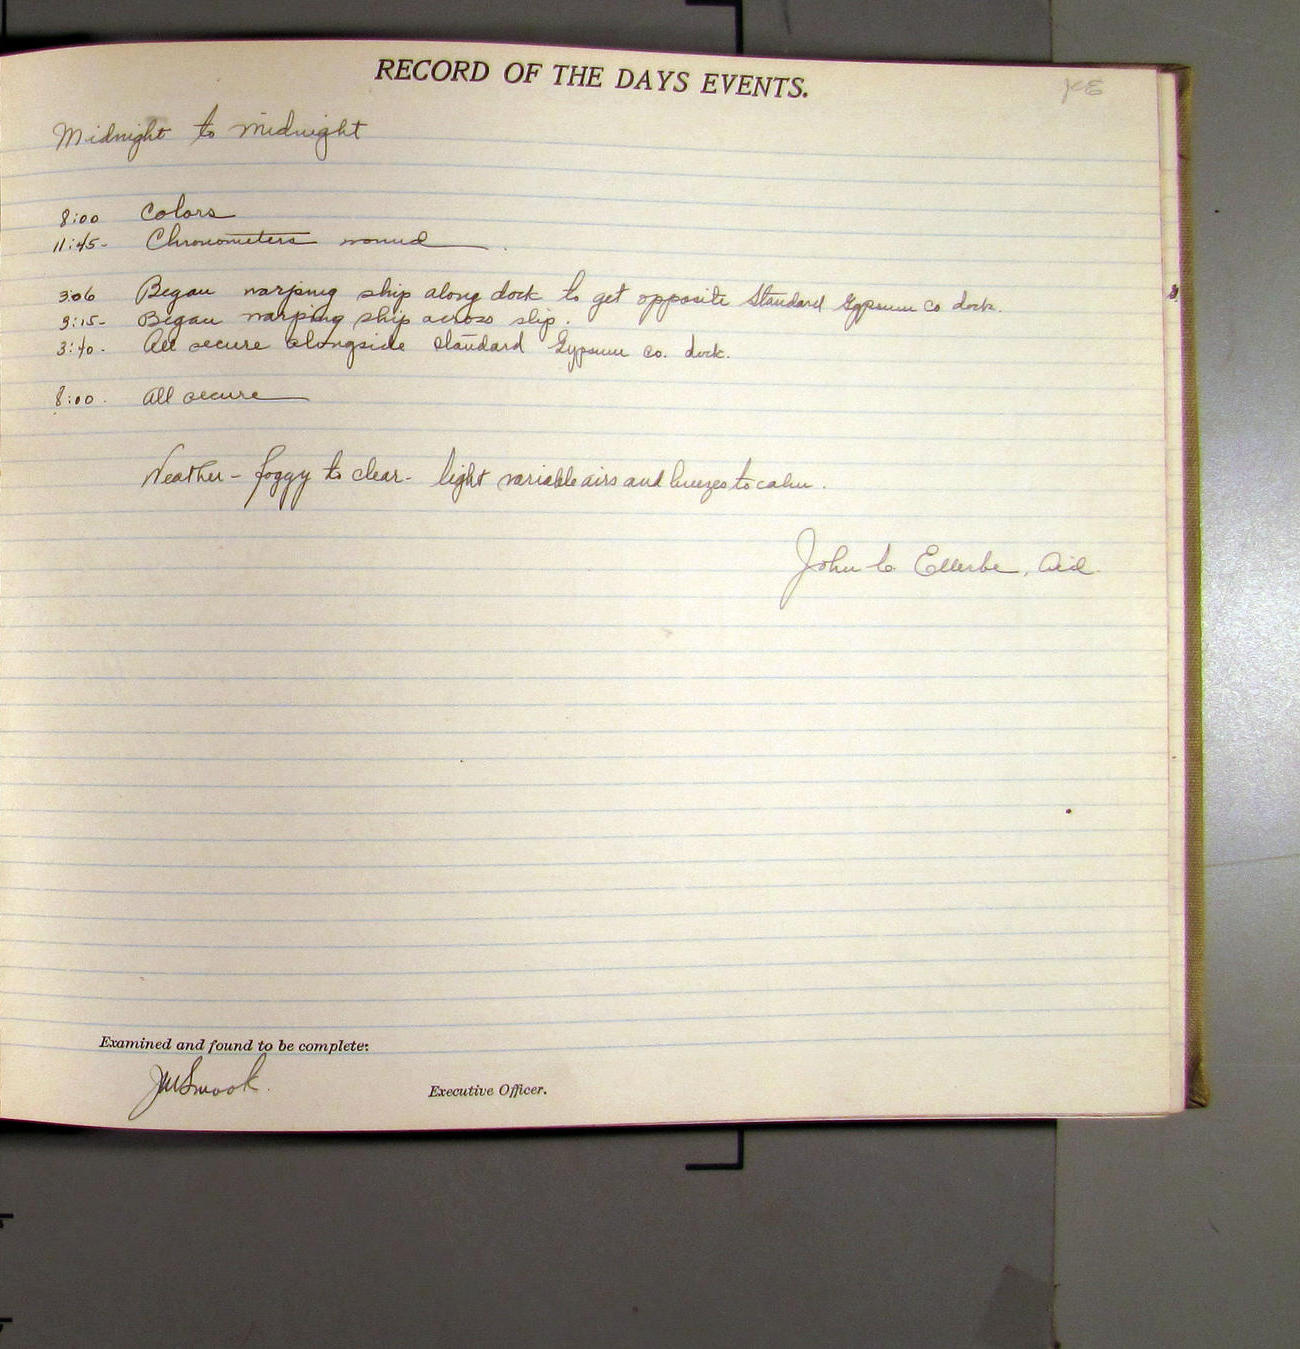 RECORD OF THE DAYS EVENTS.
JCE
Midnight to midnight
8:00 Colors
11:45- Chronometers wound
3:06 Began warping ship along dock to get opposite Standard Gypsum Co dock.
3:15- Began warping ship across slip.
3:40- All secure alongside Standard Gypsum Co. dock.
8:00. All secure
Weather - foggy to clear - light variable airs and breezes to calm.
John C. Ellerbe, Aid.
Examined and found to be complete:
JMSmook.
Executive Officer.